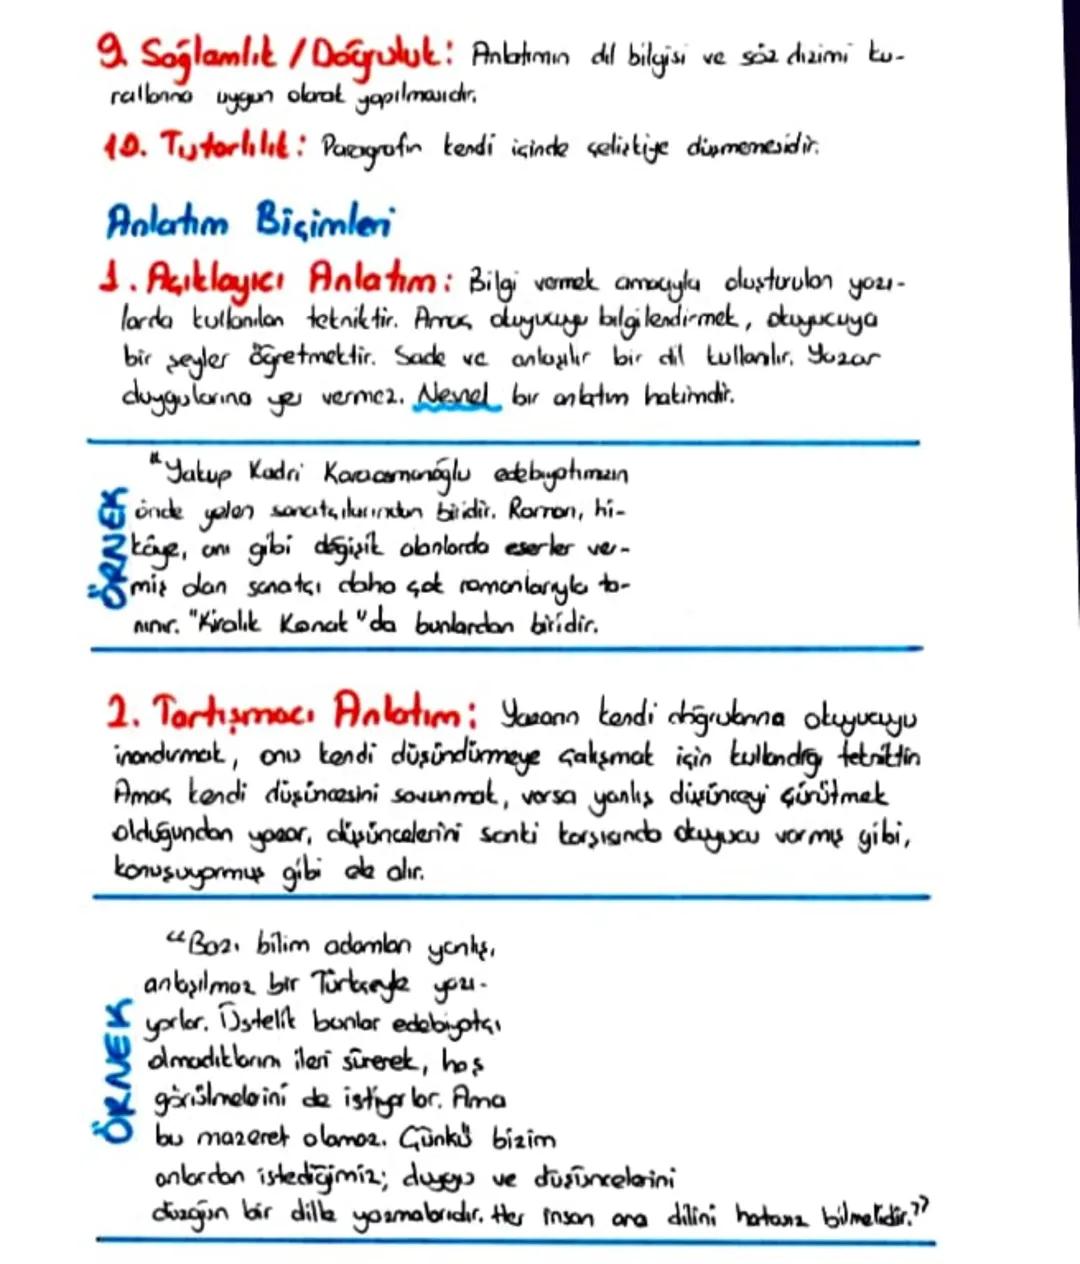 9. Sağlamlık / Doğruluk: Anlatımın dil bilgisi ve söz dizimi ku-
rallarına uygun olarak yapılmasıdır.
10. Tutarlılık: Paragrafın kendi içinde çelişkiye düşmemesidir.
Anlatım Biçimleri
1. Açıklayıcı Anlatım: Bilgi vermek amacıyla oluşturulan yazı-
larda kullanılan tekniktir. Amaç okuyucuyu bilgilendirmek, okuyucuya
bir şeyler öğretmektir. Sade ve anlaşılır bir dil kullanılır. Yazar
duygularına yer vermez. Nesnel bir anlatım hakimdir.
ÖRNEK
"Yakup Kadri Karaosmanoğlu edebiyatımızın
önde gelen sanatçılarından biridir. Roman, hi-
kâye, anı gibi değişik alanlarda eserler ver-
miş olan sanatçı daha çok romanlarıyla ta-
nınır. "Kiralık Konak" da bunlardan biridir.
2. Tartışmacı Anlatım: Yazarın kendi doğrularına okuyucuyu
inandırmak, onu kendi düşündürmeye çalışmak için kullandığı tekniktir.
Amaç kendi düşüncesini savunmak, varsa yanlış düşünceyi çürütmek
olduğundan yazar, düşüncelerini sanki karşısında okuyucu varmış gibi,
konuşuyormuş gibi ele alır.
ÖRNEK
"Bazı bilim adamları yanlış,
anlaşılmaz bir Türkçeyle yazı-
yorlar. Üstelik bunlar edebiyatçı
olmadıklarını ileri sürerek, hoş
görülmelerini de istiyorlar. Ama
bu mazeret olamaz. Çünkü bizim
onlardan istediğimiz; duygu ve düşüncelerini
düzgün bir dille yazmalarıdır. Her insan ana dilini hatasız bilmelidir."